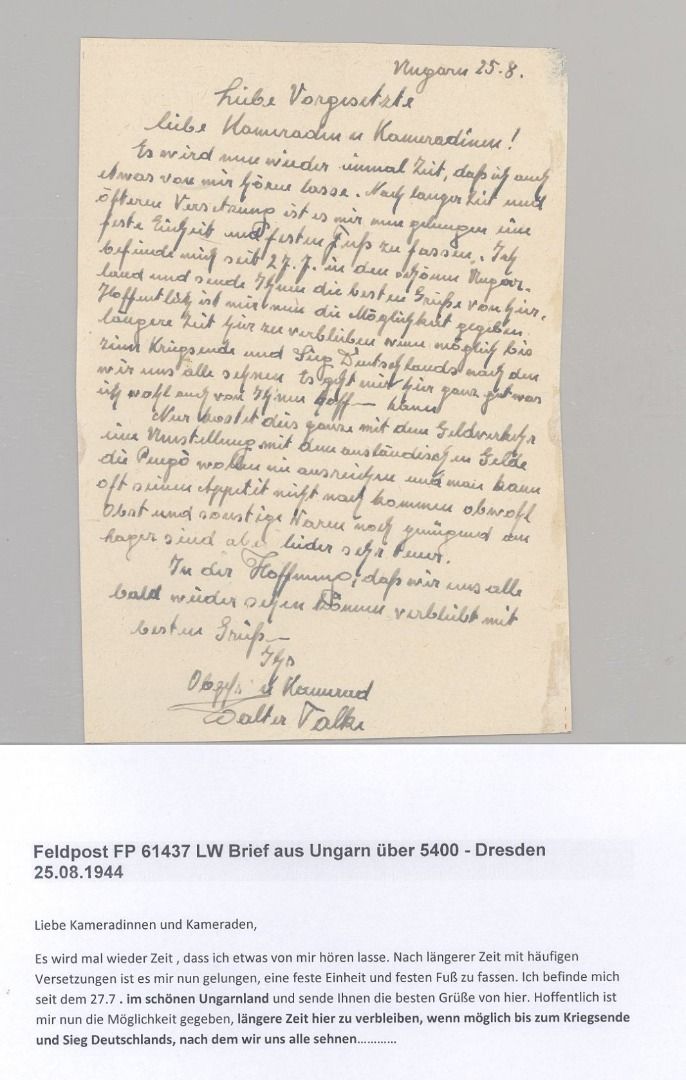 Ungarn 25.8.
Liebe Vorgesetzte
liebe Kameraden u Kameradinen!
Es wird nun wieder einmal Zeit, daß ich auch
etwas von mir hören lasse. Nach langer Zeit und
öfteren Versetzung ist es mir nun gelungen eine
feste Einheit und festen Fuß zu fassen. Ich
befinde mich seit 27.7. in den schönen Ungar-
land und sende Ihnen die besten Grüße von hier.
Hoffentlich ist mir nun die Möglichkeit gegeben
längere Zeit hier zu verbleiben wenn möglich bis
zum Kriegsende und Sieg Deutschlands nach dem
wir uns alle sehnen. Es geht mir hier ganz gut was
ich wohl auch von Ihnen hoffen kann
Nur kostet dies ganze mit dem Geldverkehr
eine Umstellung mit dem ausländischen Gelde
die Pengö wollen nie ausreichen und man kann
oft seinen Appetit nicht nach kommen obwohl
Obst und sonstige Waren noch genügend am
Lager sind aber leider sehr teuer.
In der Hoffnung, daß wir uns alle
bald wieder sehen können verbleibt mit
besten Grüßen
Ihr
Obgefr. u Kamerad
Walter Talke
Feldpost FP 61437 LW Brief aus Ungarn über 5400 - Dresden
25.08.1944
Liebe Kameradinnen und Kameraden,
Es wird mal wieder Zeit , dass ich etwas von mir hören lasse. Nach längerer Zeit mit häufigen
Versetzungen ist es mir nun gelungen, eine feste Einheit und festen Fuß zu fassen. Ich befinde mich
seit dem 27.7 . im schönen Ungarnland und sende Ihnen die besten Grüße von hier. Hoffentlich ist
mir nun die Möglichkeit gegeben, längere Zeit hier zu verbleiben, wenn möglich bis zum Kriegsende
und Sieg Deutschlands, nach dem wir uns alle sehnen............